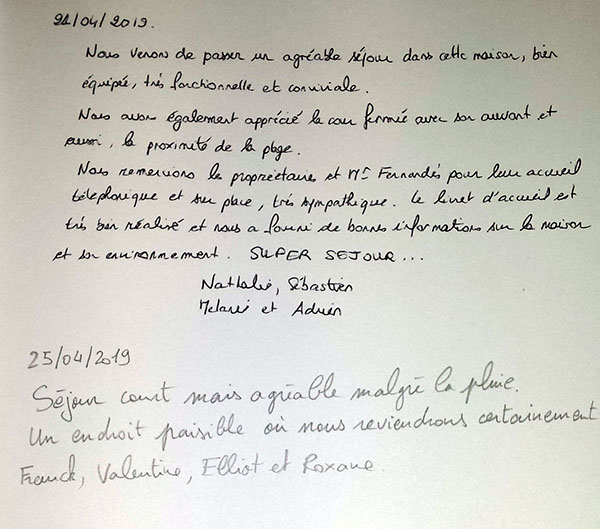 21/04/2019.
Nous venons de passer un agréable séjour dans cette maison, bien
équipée, très fonctionnelle et conviviale.
Nous avons également apprécié la cour fermée avec son auvant et
aussi, la proximité de la plage.
Nous remercions le propriétaire et Mr Fernandés pour leur accueil
téléphonique et sur place, très sympathique. Le livret d'accueil est
très bien réalisé et nous a fourni de bonnes informations sur la maison
et son environnement. SUPER SEJOUR...
Nathalie, Sébastien
Mélanie et Adrien
25/04/2019
Séjour court mais agréable malgré la pluie.
Un endroit paisible où nous reviendrons certainement
Franck, Valentine, Elliot et Roxane.